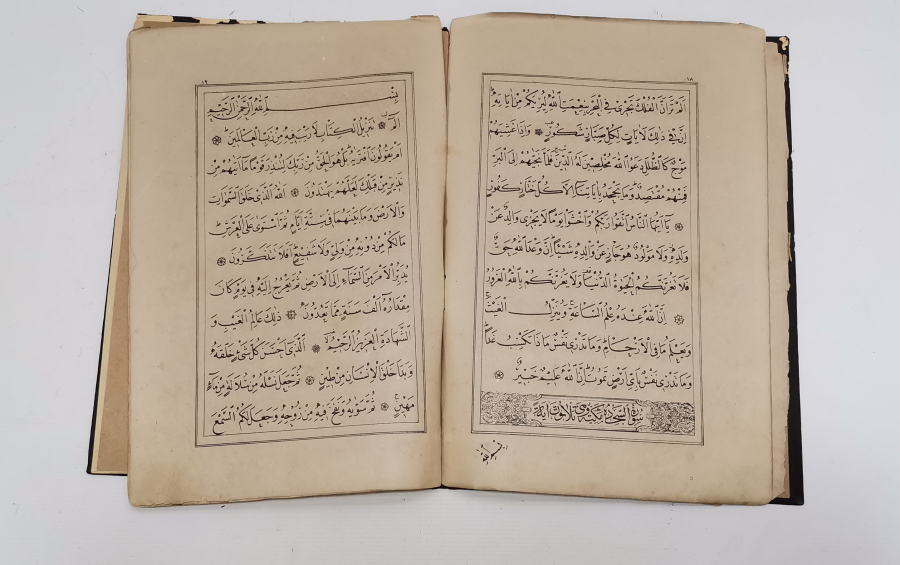 ١٨
اَلَمْ تَرَ اَنَّ الْفُلْكَ تَجْرٖى فِى الْبَحْرِ بِنِعْمَتِ اللّٰهِ لِيُرِيَكُمْ مِنْ اٰيَاتِهٖ
اِنَّ فٖى ذٰلِكَ لَاٰيَاتٍ لِكُلِّ صَبَّارٍ شَكُورٍ وَاِذَا غَشِيَهُمْ
مَوْجٌ كَالظُّلَلِ دَعَوُا اللّٰهَ مُخْلِصٖينَ لَهُ الدّٖينَ فَلَمَّا نَجّٰيهُمْ اِلَى الْبَرِّ
فَمِنْهُمْ مُقْتَصِدٌ وَمَا يَجْحَدُ بِاٰيَاتِنَا اِلَّا كُلُّ خَتَّارٍ كَفُورٍ
يَا اَيُّهَا النَّاسُ اتَّقُوا رَبَّكُمْ وَاخْشَوْا يَوْمًا لَا يَجْزٖى وَالِدٌ عَنْ
وَلَدِهٖ وَلَا مَوْلُودٌ هُوَ جَازٍ عَنْ وَالِدِهٖ شَيْـًٔا اِنَّ وَعْدَ اللّٰهِ حَقٌّ
فَلَا تَغُرَّنَّكُمُ الْحَيٰوةُ الدُّنْيَا وَلَا يَغُرَّنَّكُمْ بِاللّٰهِ الْغَرُورُ
اِنَّ اللّٰهَ عِنْدَهُ عِلْمُ السَّاعَةِ وَيُنَزِّلُ الْغَيْثَ
وَيَعْلَمُ مَا فِى الْاَرْحَامِ وَمَا تَدْرٖى نَفْسٌ مَاذَا تَكْسِبُ غَدًا
وَمَا تَدْرٖى نَفْسٌ بِاَىِّ اَرْضٍ تَمُوتُ اِنَّ اللّٰهَ عَلٖيمٌ خَبٖيرٌ
سورة السجدة مكية وهى ثلاثون اية
بسم الله
١٩
بِسْمِ اللّٰهِ الرَّحْمٰنِ الرَّحٖيمِ
الٓمٓ تَنْزٖيلُ الْكِتَابِ لَا رَيْبَ فٖيهِ مِنْ رَبِّ الْعَالَمٖينَ
اَمْ يَقُولُونَ افْتَرٰيهُ بَلْ هُوَ الْحَقُّ مِنْ رَبِّكَ لِتُنْذِرَ قَوْمًا مَا اَتٰيهُمْ مِنْ
نَذٖيرٍ مِنْ قَبْلِكَ لَعَلَّهُمْ يَهْتَدُونَ اَللّٰهُ الَّذٖى خَلَقَ السَّمٰوَاتِ
وَالْاَرْضَ وَمَا بَيْنَهُمَا فٖى سِتَّةِ اَيَّامٍ ثُمَّ اسْتَوٰى عَلَى الْعَرْشِ
مَا لَكُمْ مِنْ دُونِهٖ مِنْ وَلِىٍّ وَلَا شَفٖيعٍ اَفَلَا تَتَذَكَّرُونَ
يُدَبِّرُ الْاَمْرَ مِنَ السَّمَاءِ اِلَى الْاَرْضِ ثُمَّ يَعْرُجُ اِلَيْهِ فٖى يَوْمٍ كَانَ
مِقْدَارُهُ اَلْفَ سَنَةٍ مِمَّا تَعُدُّونَ ذٰلِكَ عَالِمُ الْغَيْبِ وَ
الشَّهَادَةِ الْعَزٖيزُ الرَّحٖيمُ اَلَّذٖى اَحْسَنَ كُلَّ شَىْءٍ خَلَقَهُ
وَبَدَاَ خَلْقَ الْاِنْسَانِ مِنْ طٖينٍ ثُمَّ جَعَلَ نَسْلَهُ مِنْ سُلَالَةٍ مِنْ مَاءٍ
مَهٖينٍ ثُمَّ سَوّٰيهُ وَنَفَخَ فٖيهِ مِنْ رُوحِهٖ وَجَعَلَ لَكُمُ السَّمْعَ